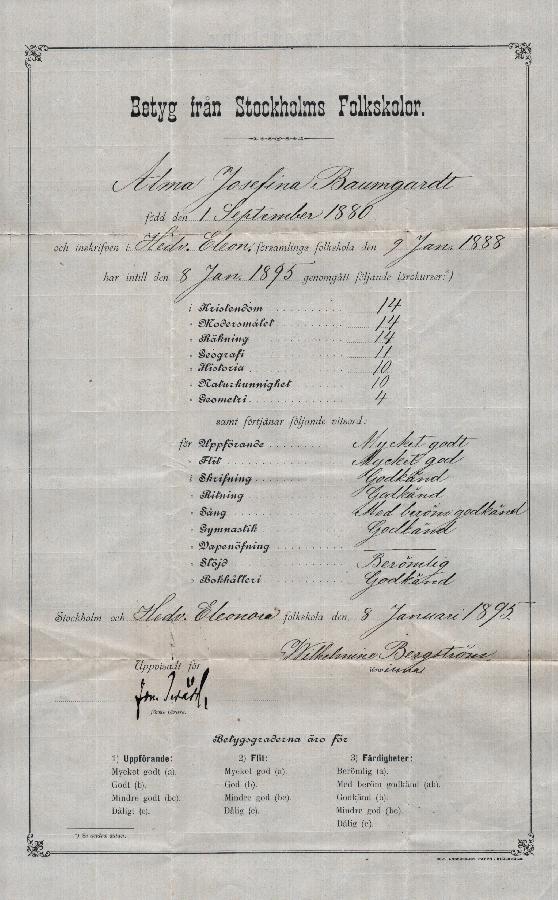 Betyg från Stockholms Folkskolor.
Alma Josefina Baumgardt
född den 1 September 1880
och inskrifven i Hedv. Eleon. församlings folkskola den 9 Jan. 1888
har intill den 8 Jan. 1895 genomgått följande lärokurser:*)
i Kristendom 14
» Modersmålet 14
» Räkning 14
» Geografi 11
» Historia 10
» Naturkunnighet 10
» Geometri 4
samt förtjänar följande vitsord:
för Uppförande Mycket godt
» Flit Mycket god
i Skrifning Godkänd
» Ritning Godkänd
» Sång Med beröm godkänd
» Gymnastik Godkänd
» Vapenöfning
» Slöjd Berömlig
» Bokhålleri Godkänd
Stockholm och Hedv. Eleonora folkskola den 8 Januari 1895.
Wilhelmina Bergström
Uppvisadt för
Betygsgraderna äro för
1) Uppförande: 2) Flit: 3) Färdigheter:
Mycket godt (a). Mycket god (a). Berömlig (a).
Godt (b). God (b). Med beröm godkänd (ab).
Mindre godt (bc). Mindre god (bc). Godkänd (b).
Dåligt (c). Dålig (c). Mindre god (bc).
Dålig (c).
*) Se andra sidan.